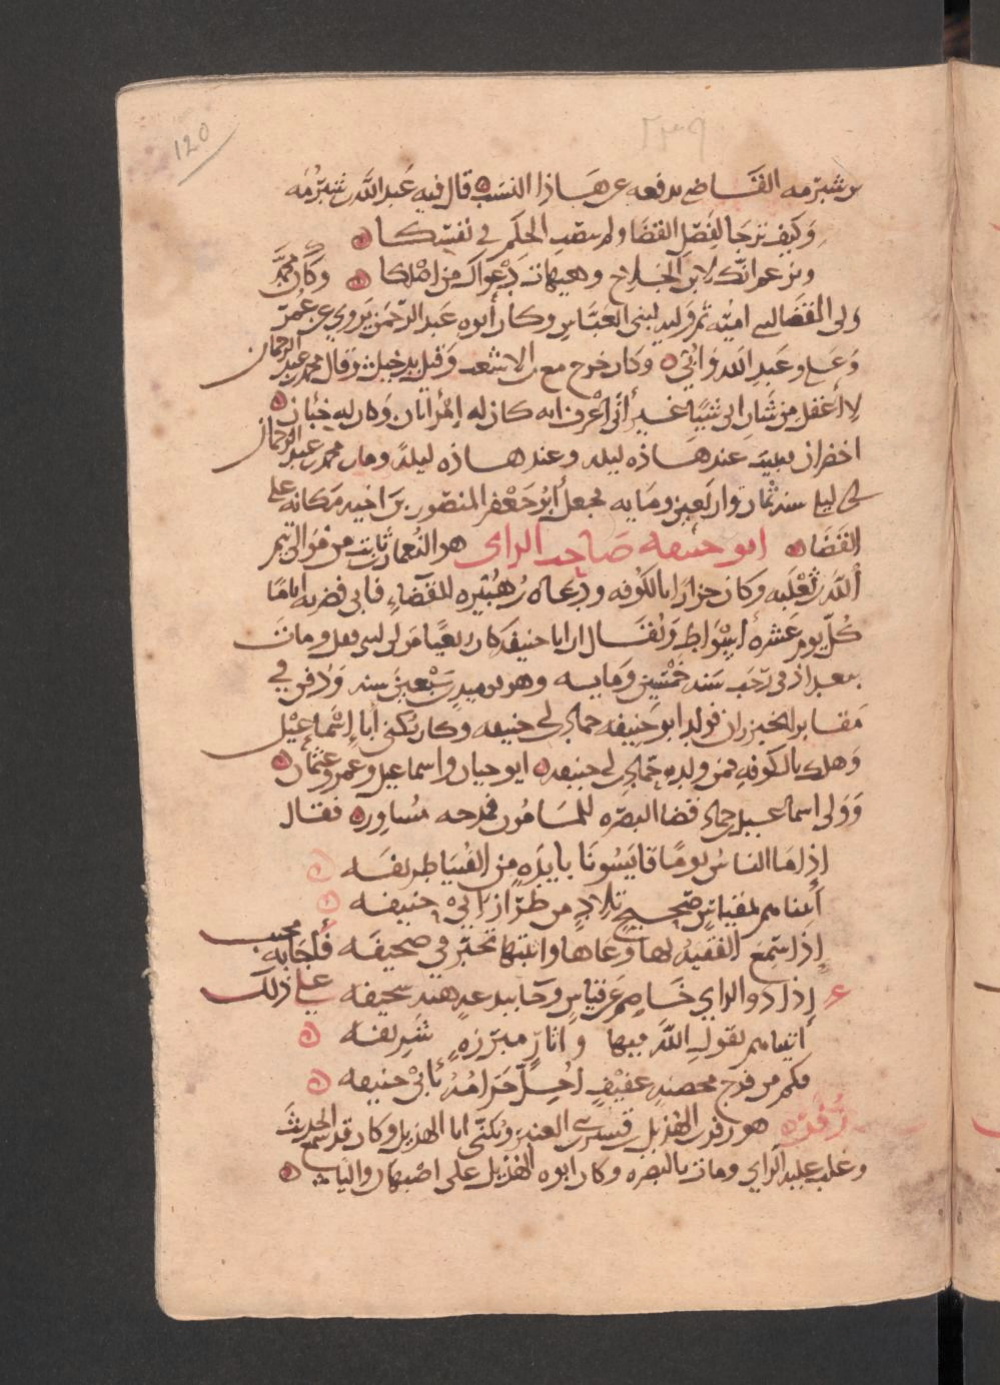 120
بن شبرمه القاضي يدفعه عن هاذا النسب قال فيه عبد الله بن شبرمه
وكيف ترجا لفصل القضا ولم تصب الحكم في نفسكا
وتزعم انك لابن الجلاح وهيهات دعواك من اصلكا وكان محمد
ولي القضا لبني اميه ثم وليه لبني العباس وكان أبوه عبد الرحمن يروي عن عمر
وعلي وعبد الله وابي وكان خرج مع بن الاشعث وقتل بدجيل وقال محمد بن عبد الرحمان
لا أعقل من شان ابي شيئا غير أني أعرف انه كان له امرأتان وكان له حبان
اخضران يبيت عند هاذه ليله وعند هاذه ليلة ومات محمد بن عبد الرحمان
بن ابي ليلي سنه ثمان واربعين ومايه فجعل أبو جعفر المنصور بن اخيه مكانه على
القضا ابو حنيفه صاحب الراي هو النعمان بن ثابت من موالي تيم
الله بن ثعلبه وكان خزازا بالكوفه ودعاه بن هبيره للقضاء فابي فضربه اياما
كل يوم عشرة اسواط ويقال ان ابا حنيفة كان ربعيا مولى لبني قفل ومات
ببغداد في رجب سنه خمسين ومايه وهو يوميذ بن سبعين سنه ودفن في
مقابر الخيزران فولد ابو حنيفه حماد بن ابي حنيفه وكان يكنى أبا إسماعيل
وهلك بالكوفه فمن ولده حماد بن ابي حنيفه ابو حيان واسماعيل وعمر وعثمان
وولى اسماعيل بن حماد قضا البصره للمامون فمدحه مساور فقال
إذا ما الناس يوما قايسونا بابدة من الفتيا طريفه
أتيناهم بمقياس صحيح تلاد من طراز ابي حنيفه
إذا سمع الفقيه لها وعاها واثبتها بحبر في صحيفه فأجابه مجيب
إذا ذو الراي خاصم عن قياس وجا ببدعه هنه سخيفه على ذلك
أتيناهم بقول الله فيها واثار مبرزة شريفه
فكم من فرج محصنه عفيف أحل حرامه بابي حنيفه
زفر هو زفر بن الهذيل بن قيس من العنبر ويكنى ابا الهذيل وكان قد سمع الحديث
وغلب عليه الراي ومات بالبصره وكان ابوه الهذيل على اصبهان